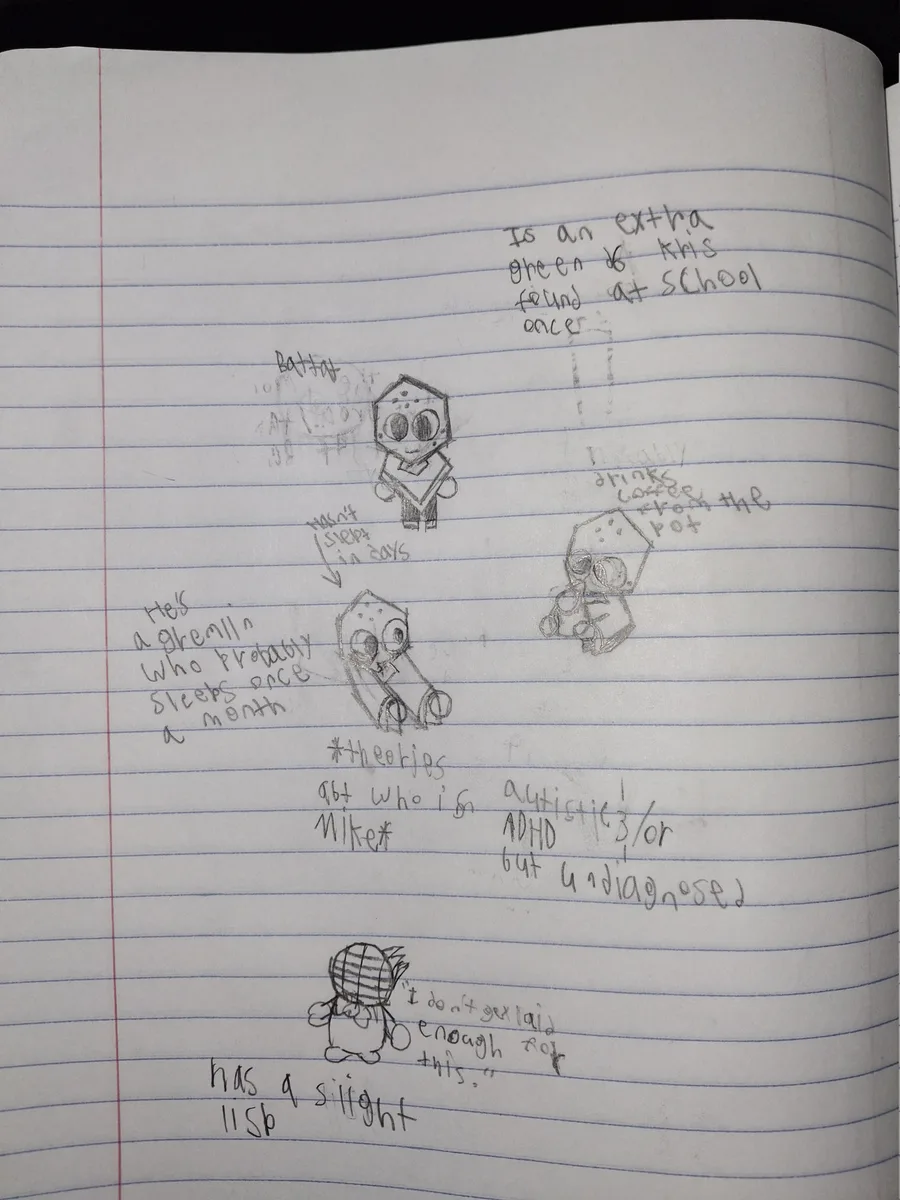 Is an extra
green d6 Kris
found at school
once
Battat
Hasn't
slept
in days
drinks
coffee
from the
pot
He's
a gremlin
who probably
sleeps once
a month
*theories
abt who is
Mike*
autistic &/or
ADHD
but undiagnosed
"I don't get laid
enough for
this."
has a slight
lisp